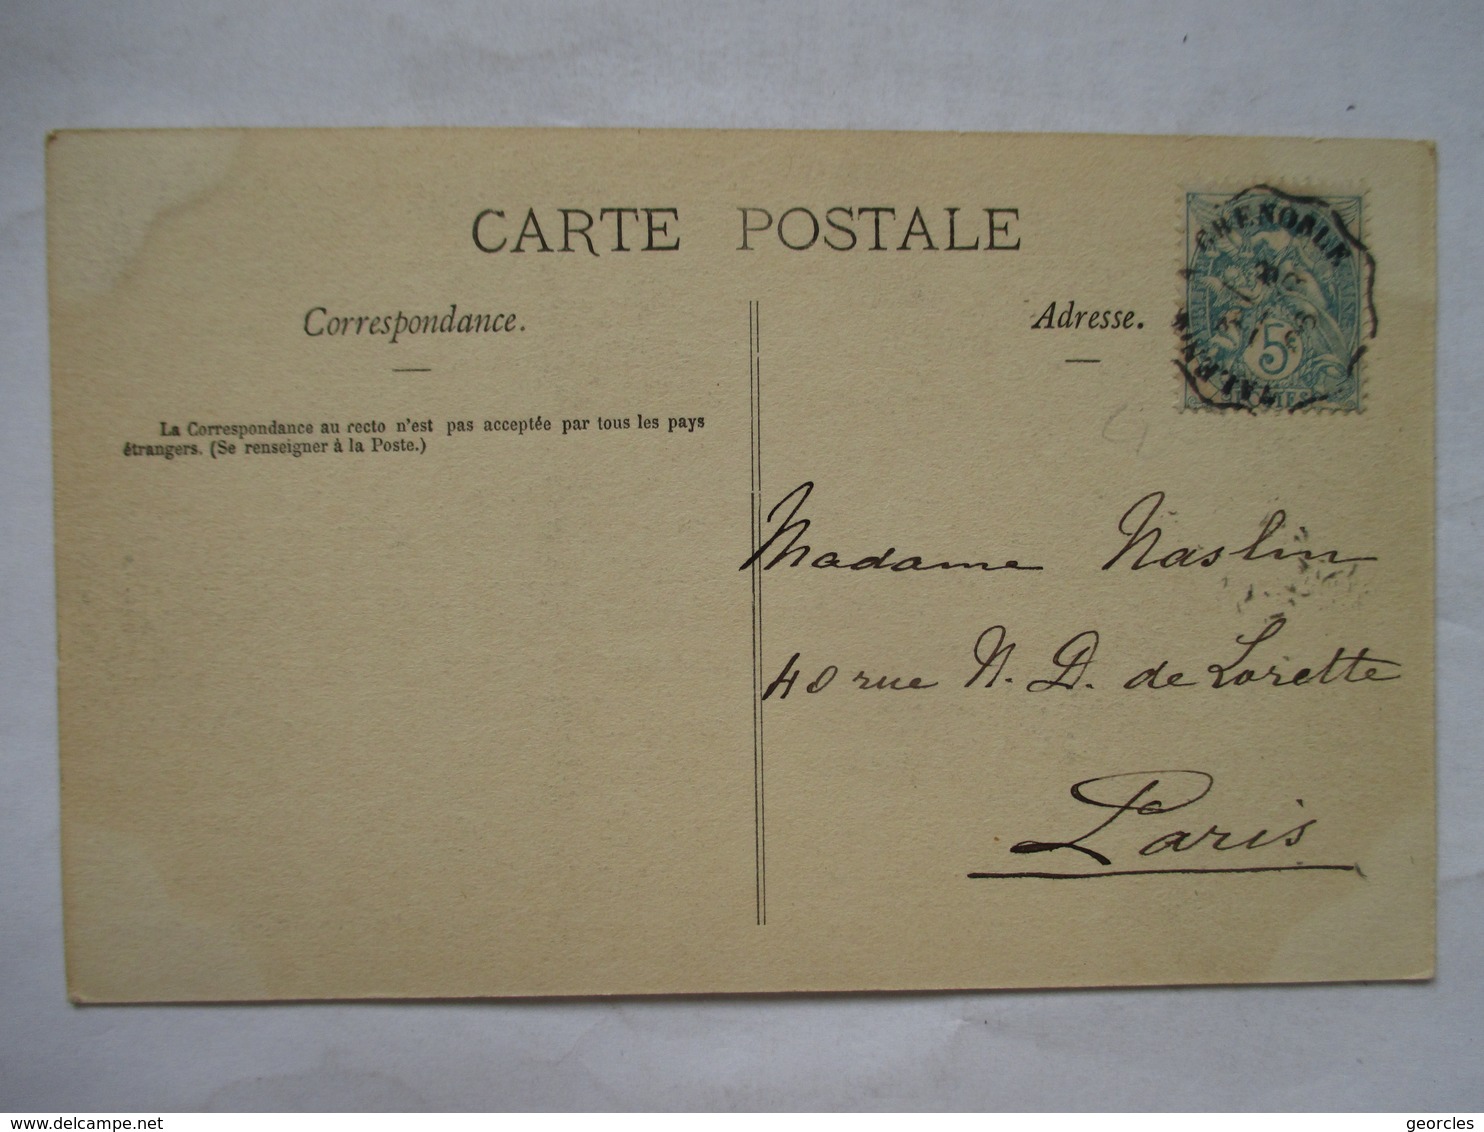 CARTE POSTALE
Correspondance.
La Correspondance au recto n'est pas acceptée par tous les pays
étrangers. (Se renseigner à la Poste.)
Adresse.
GRENOBLE
5
Madame Naslin
40 rue N. D. de Lorette
Paris
delcampe.net
georcles